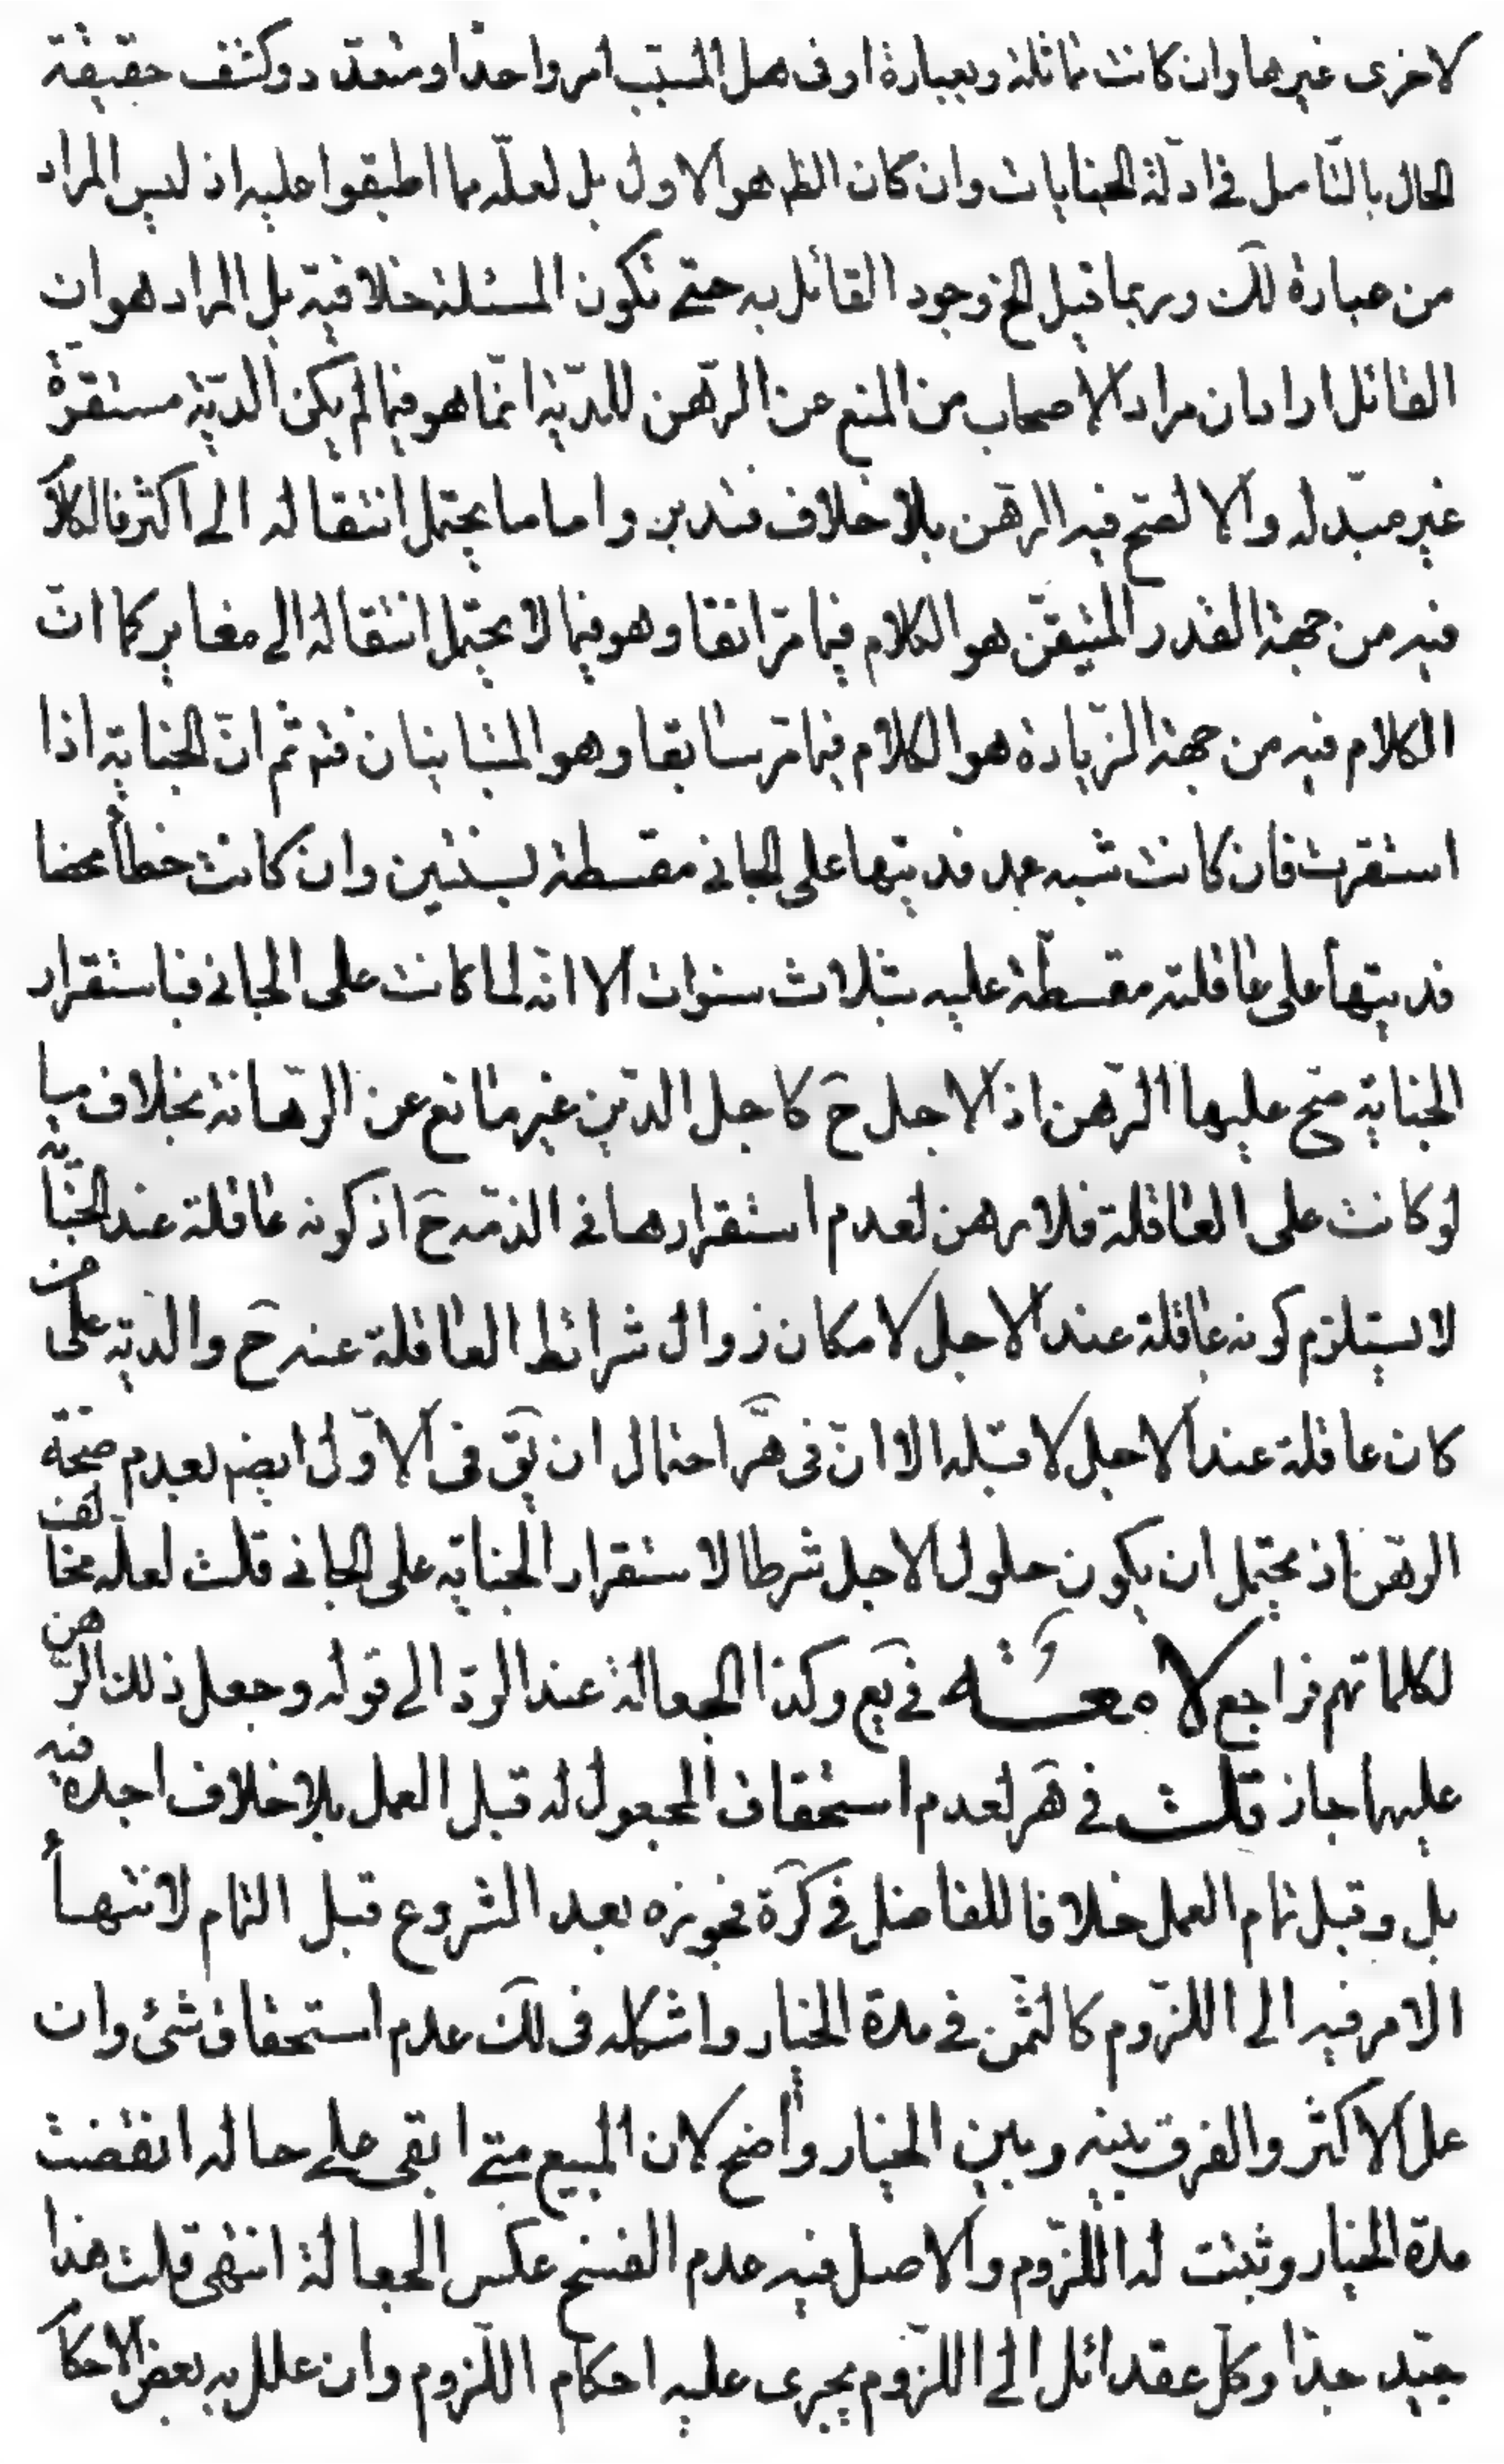 لاخرى غيرها وان كانت مماثلة وبعبارة اوفى هل المسبّب امر واحد او متعدّد وكشف حقيقة
الحال بالتّامل فى ادلّة الجنايات وان كان الظ هو الاول بل لعلّه مما اطبقوا عليه اذ ليس المراد
من عبارة لك وربما قيل الخ وجود القائل به حتى تكون المسئلة خلافيّة بل المراد هو ان
القائل اراد ان مراد الاصحاب من المنع عن الرّهن للديّة انّما هو فيما لم يكن الديّة مستقرّة
غير مبّدله والا لصّح فيه الرّهن بلا خلاف فتدبر واما ما يحتمل انتقاله الى اكثر فالكلا
فيه من جهة القدر المتيقّن هو الكلام فيما مرّ انفا وهو فيما لا يحتمل انتقاله الى مغاير كما انّ
الكلام فيه من جهة الزّيادة هو الكلام فيما مرّ سابقا وهو المتباينان فتم ثم انّ الجناية اذا
استقرت فان كانت شبه عمد فديتها على الجانى مقسطة لسنتين وان كانت خطأ محضا
فديتها على عاقلته مقسطّة عليه بثلاث سنوات الا انّه لما كانت على الجانى فباستقرار
الجناية صّح عليها الرّهن اذ الاجل حَ كاجل الدّين غير مانع عن الرّهانة بخلاف ما
لو كانت على العاقلة فلا رهن لعدم استقرارها فى الذمّه حَ اذ كونه عاقلة عند الجناية
لا يستلزم كونه عاقلة عند الاجل لامكان زوال شرائط العاقلة عنه حَ والدية على من
كان عاقلة عند الاجل لا قبله الا انّ فى هَر احتمال ان يَق فى الاوّل ايضم بعدم صحّة
الرّهن اذ يحتمل ان يكون حلول الاجل شرطا لاستقرار الجناية على الجانى قلت لعلّه مخالف
لكلماتهم فراجع فى يَع وكذا الجعالة عند الرّد الى قوله وجعل ذلك الرّهن
عليها جاز قلت فى هَر لعدم استحقاق المجعول له قبل العمل بلا خلاف اجده فيه
بل وقبل تمام العمل خلافا للفاضل فى كرَة فجوزه بعد الشروع قبل التمام لانتهأ
الامر فيه الى اللزّوم كالثّمن فى مدة الخيار واشكله فى لك عدم استحقاق شئ وان
عمل الاكثر والفرق بينه وبين الخيار واضح لان المبيع متى ابقى على حاله انقضت
مدّة الخيار وثبتت له اللزّوم والاصل فيه عدم الفسخ عكس الجعالة انتهى قلت هذا
جيّد جدّا وكلّ عقد ائل الى اللزّوم يجرى عليه احكام اللّزوم وان علل به بعض الاحكا